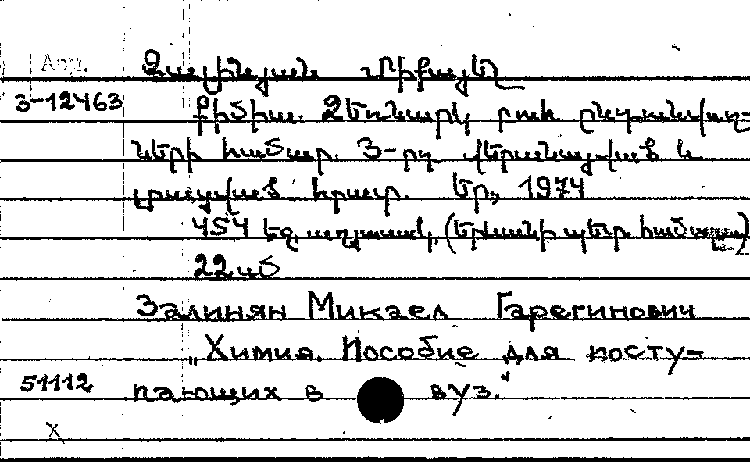 Арм.
Զալինյան Միքայել
3-12463
Քիմիա. Ձեռնարկ բուհ ընդունվող-
ների համար. 3-րդ վերանայված և
լրացված հրատ. Եր., 1974
454 էջ, աղյուսակ, (Երևանի պետ. համալս.)
22 սմ
Залинян Микаел Гарегинович
„Химия. Пособие для посту-
51112
пающих в вуз."
X